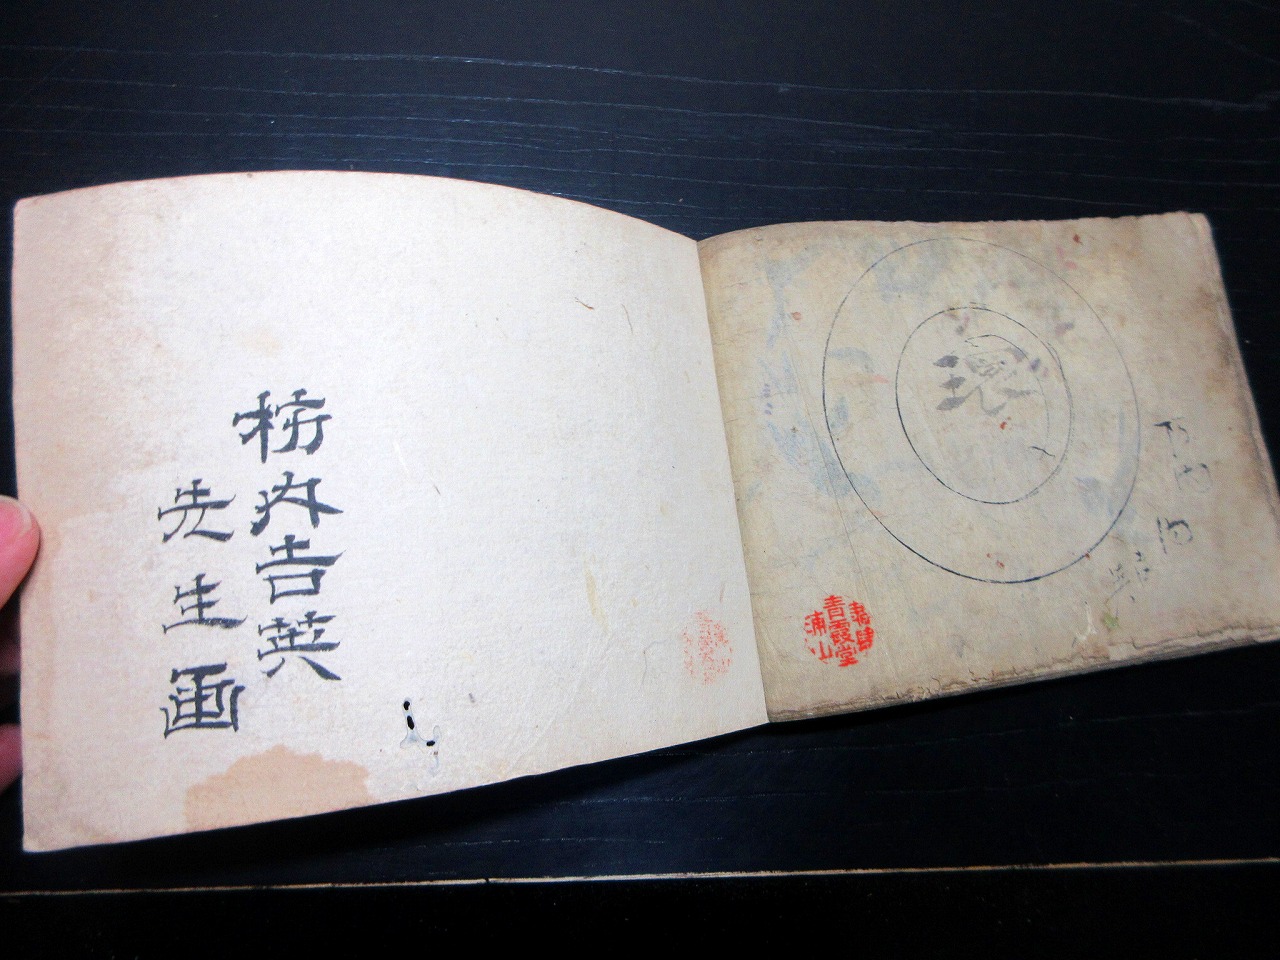 栃内吉英
先生画
環
書肆
青霞堂
浦山